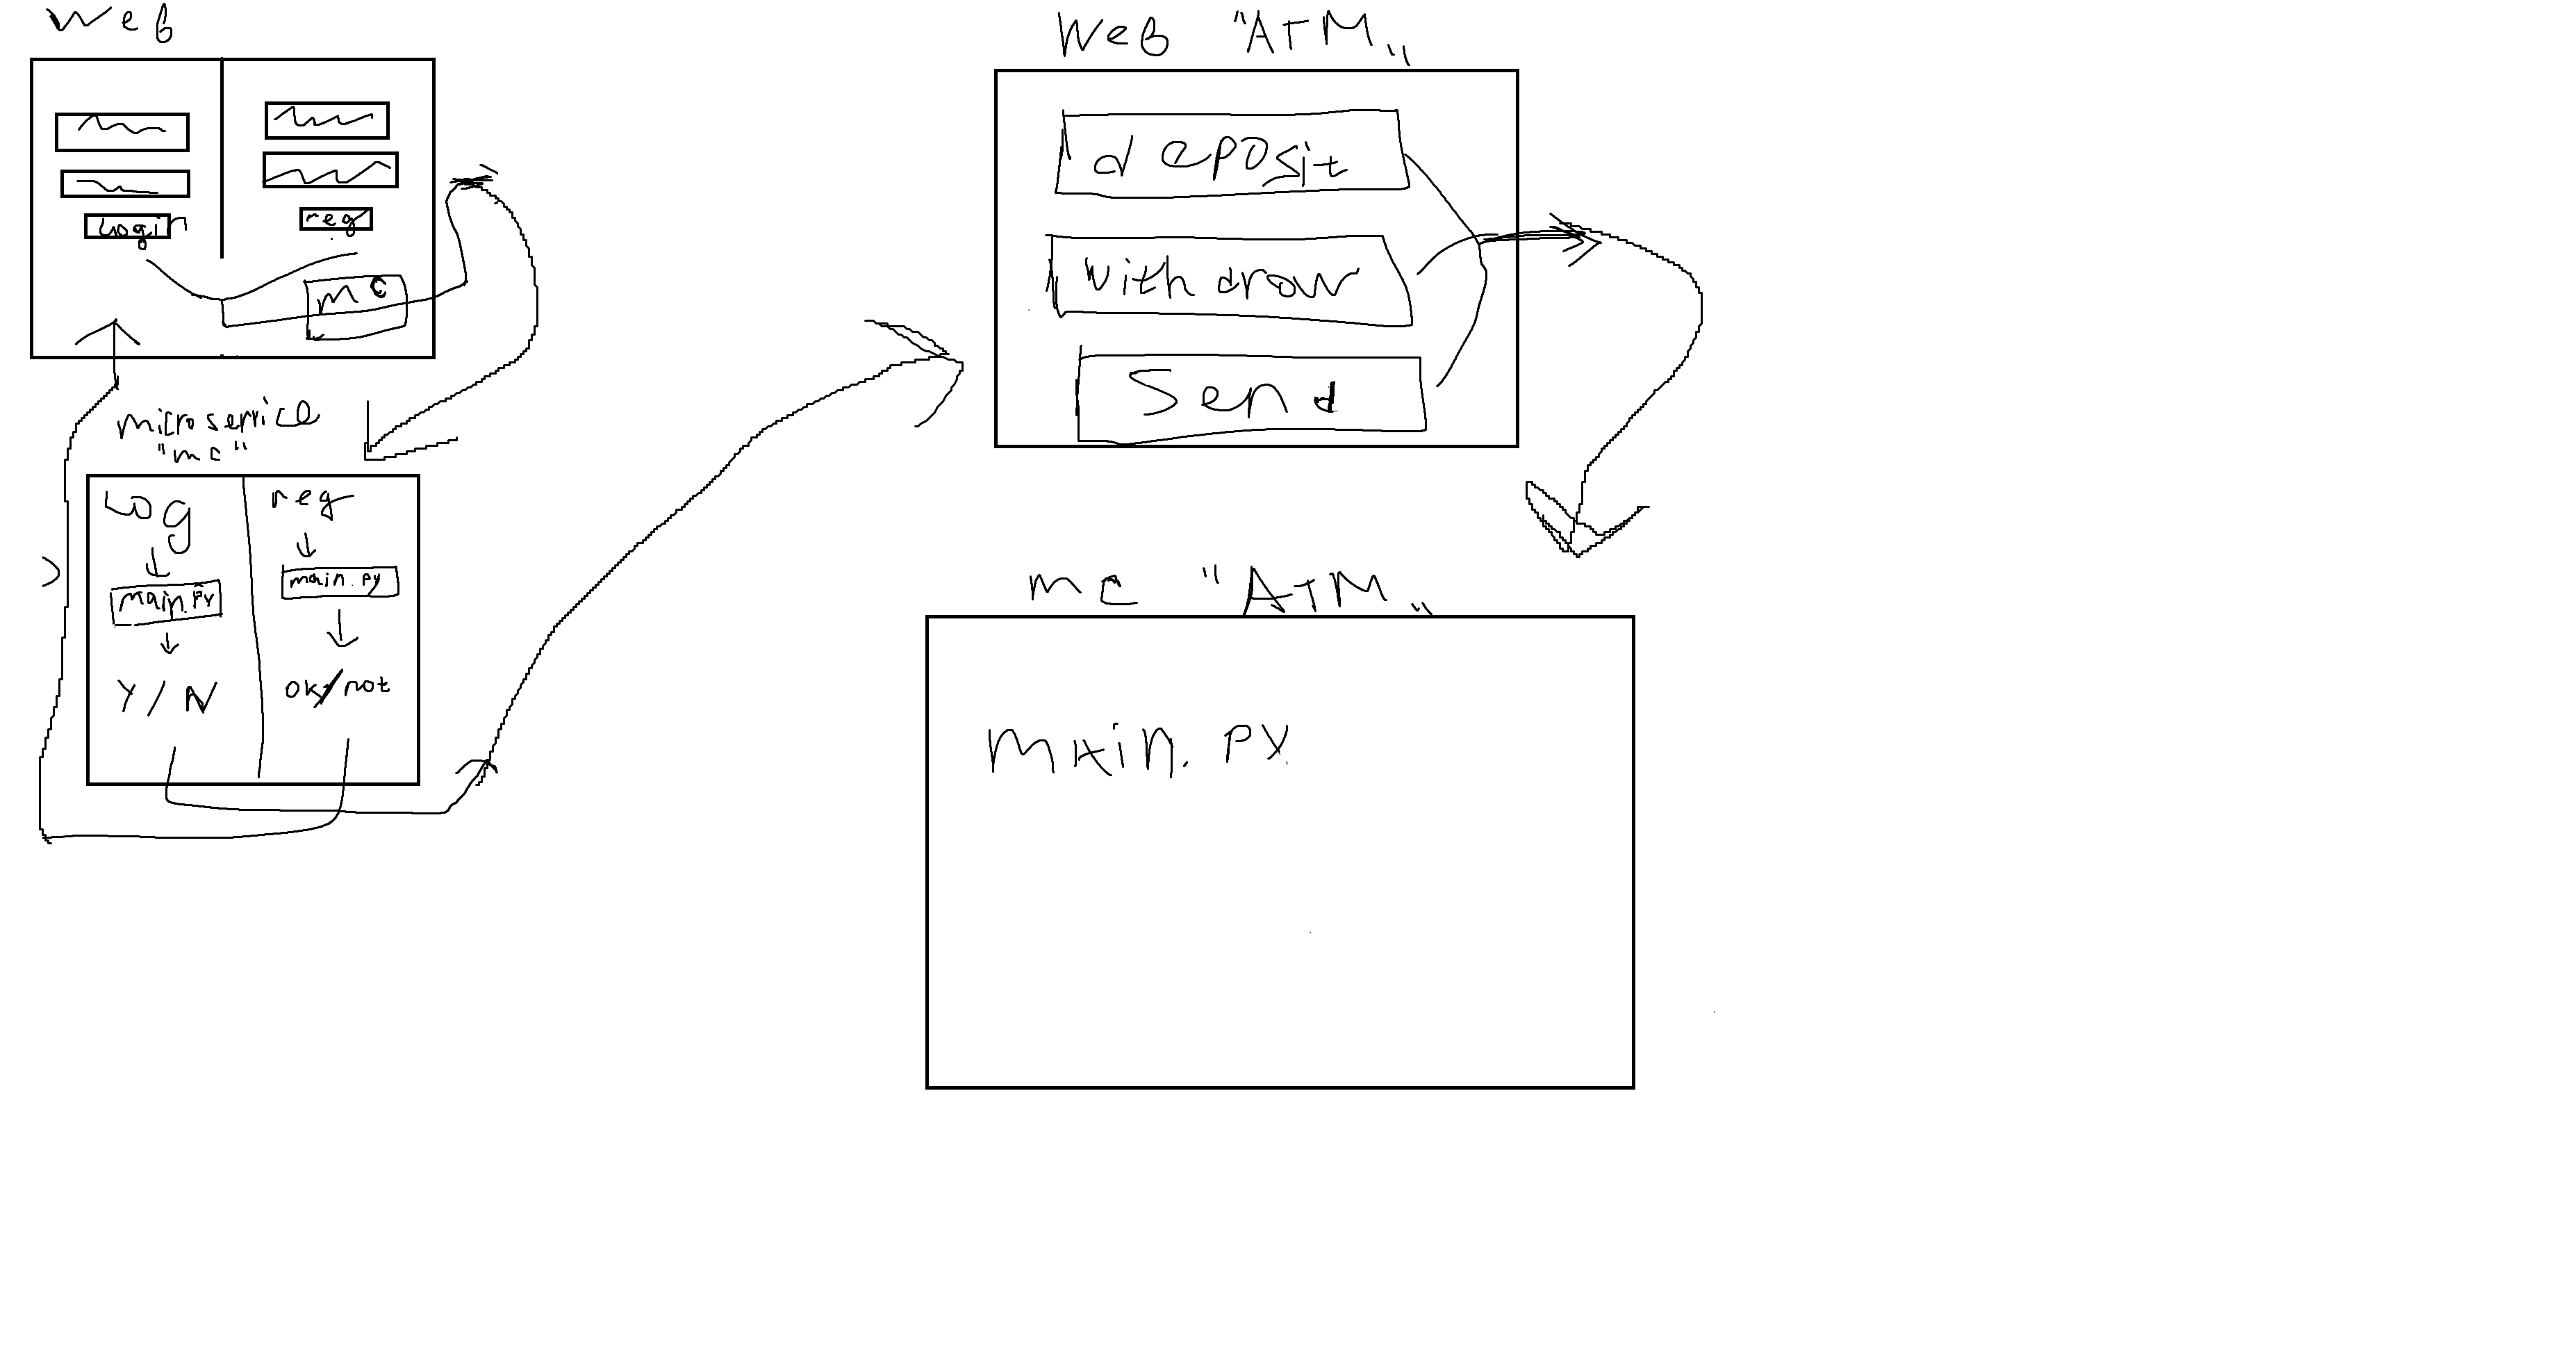 Web
Login
reg
mc
microservice
"mc"
Log
main.py
Y/N
reg
main.py
ok/not
Web "ATM"
deposit
withdrow
Send
mc "ATM"
main.py